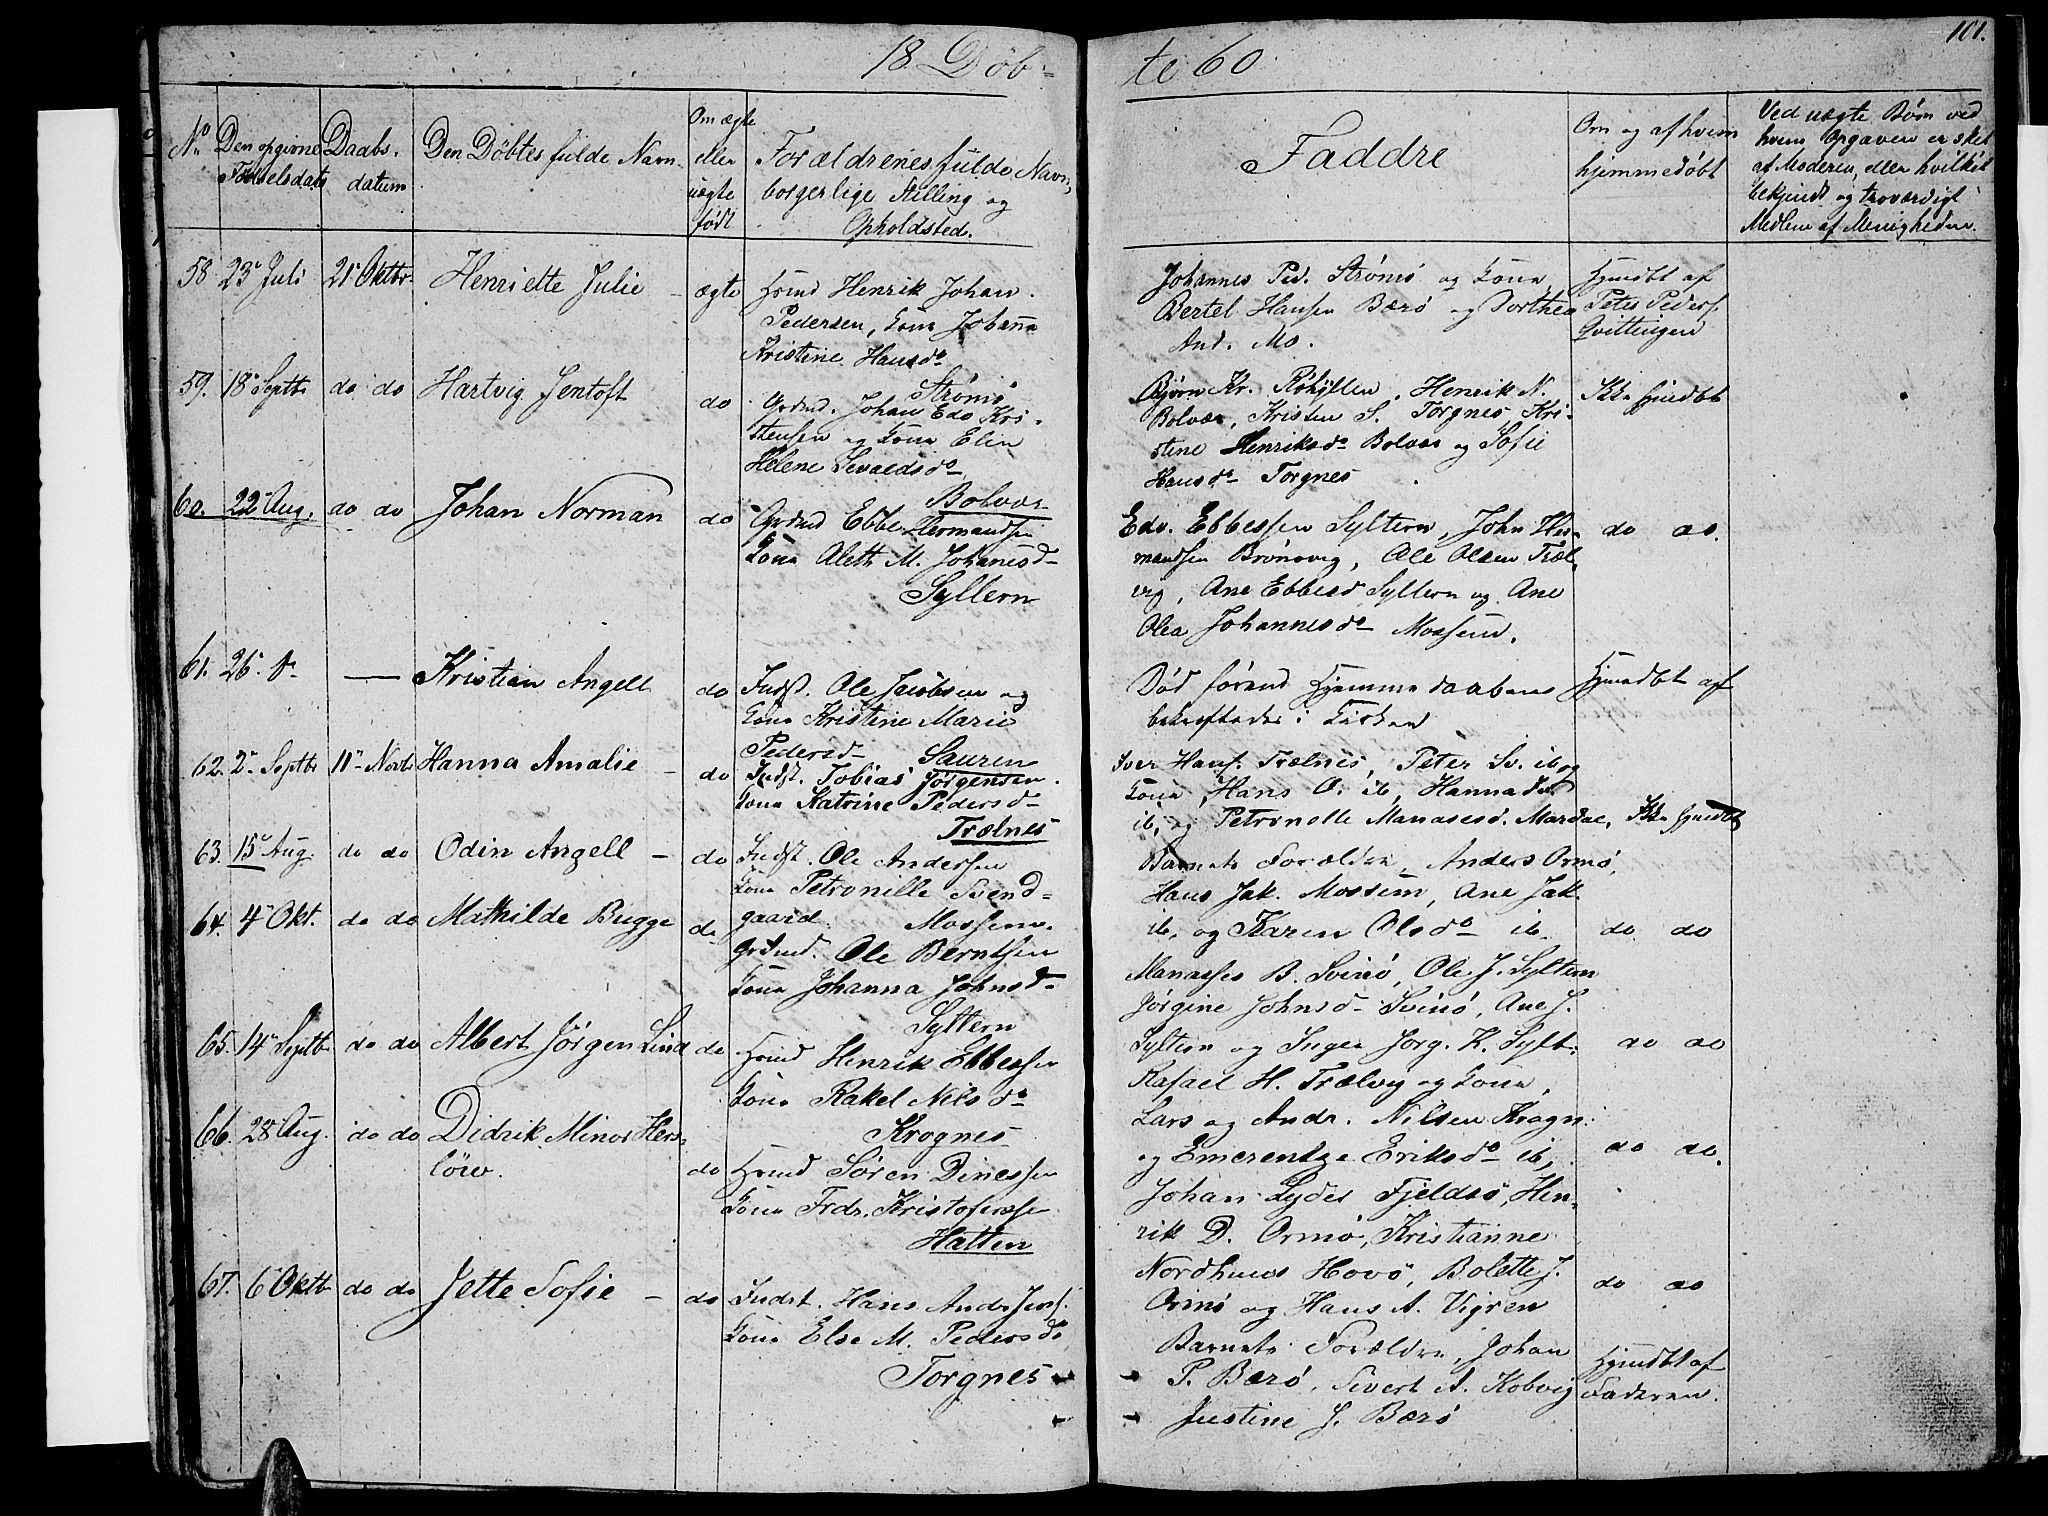 18 Döb-
te 60
101.
No
Den opgivne
Fødselsdats
Daabs-
datum
Den Döbtes fulde Navn
Om ægte
eller
uægte
født
Forældrenes fulde Navn,
borgerlige Stilling og
Opholdsted.
Faddre
Om og af hvem
hjemmedøbt
Ved uægte Børn ved
hvem Opgaven er sket
af Moderen, eller hvilket
bekjendt og troværdigt
Medlem af Menigheden.
58 23 Juli 21 Oktbr Henriette Julie - ægte
Hmnd Henrik Johan
Pedersen, Kone Johanna
Kristine Hansd.
Strömö
Johannes Ped. Strömö og Kone,
Bertel Hansen Bærö og Dorthea
And. Mo.
Hjmdbt af
Peter Peders.
Qvittingen
59. 18 Septb do do Hartvig Jentoft do
Grdmd. Johan Edv. Kri-
stensen og Kone Elin
Helene Sevaldsd.
Bolvær
Björn Kr. Röhyllen, Henrik N.
Bolvær, Kristen S. Torgnes, Kri-
stine Henriksd. Bolvær og Sofie
Hansd. Torgnes
Ikke hjmdbt
60. 22 Aug. do do Johan Norman do
Grdmd Ebbe Hermandsen
Kone Aleth M. Johanesd
Syltern
Edv. Ebbessen Syltern, John Her-
mandsen Brönövig, Ole Olsen Træl-
vig, Ane Ebbesd Syltern og Ane
Olea Johannesd. Mossem.
do do.
61. 26 do — Kristian Angell do
Indst. Ole Jacobsen og
Kone Kristine Marie
Pedersd Sauren
Død förend Hjemmedaabens
bekræftedes i Kirken
Hjmdbt af
62. 2 Septb 11 Novb Hanna Amalie - do
Indst. Tobias Jörgensen
Kone Katrine Pedersd
Trælnes
Iver Hans. Trælnes, Peter Sv. ib og
Kone, Hans O. ib, Hanna
ib, og Petronelle Manasesd. Mardal,
Ikke hjmdbt
63. 15 Aug. do do Odin Angell - do
Indst. Ole Andersen
Kone Petronille Svend-
gaard. Mossem.
Barnets Forældre, Anders Ormö,
Hans Jak. Mossem, Ane Jak.
ib, og Karen Olsd. ib.
do do
64. 4 Okt. do do Mathilde Bugge do
Grdmd. Ole Berntsen
Kone Johanna Johnsd.
Syltern
Manasses B. Svinö, Ole J. Syltern
Jörgine Johnsd Svinö, Ane J.
Syltern og Inger Jörg. K. Sylt.
do do
65. 14 Septb do do Albert Jörgen Lind do
Hmnd Henrik Ebbessen
Kone Rakel Nilsd.
Krognes
Rafael H. Trælvig og Kone,
Lars og Andr. Nilsen Krogn.
og Emerentze Eriksd. ib,
do do.
66. 28 Aug. do do Didrik Minor Hers-
löw.
do
Hmnd Sören Dinessen
Kone Frdr. Kristofersen
Hatten
Johan Lyder Fjeldsö, Hen-
rik D. Ormö, Kristianne
Nordhuus Hovö, Bolette J.
Ormö og Hans A. Vigren
do do
67. 6 Oktb do do Jette Sofie - do
Indst. Hans Anders Jens.
Kone Else M. Pedersd.
Torgnes
Barnets Forældre, Johan
P. Bærö, Sivert A. Kobvig
Justine J. Bærö
Hjmdbt af
Faderen.